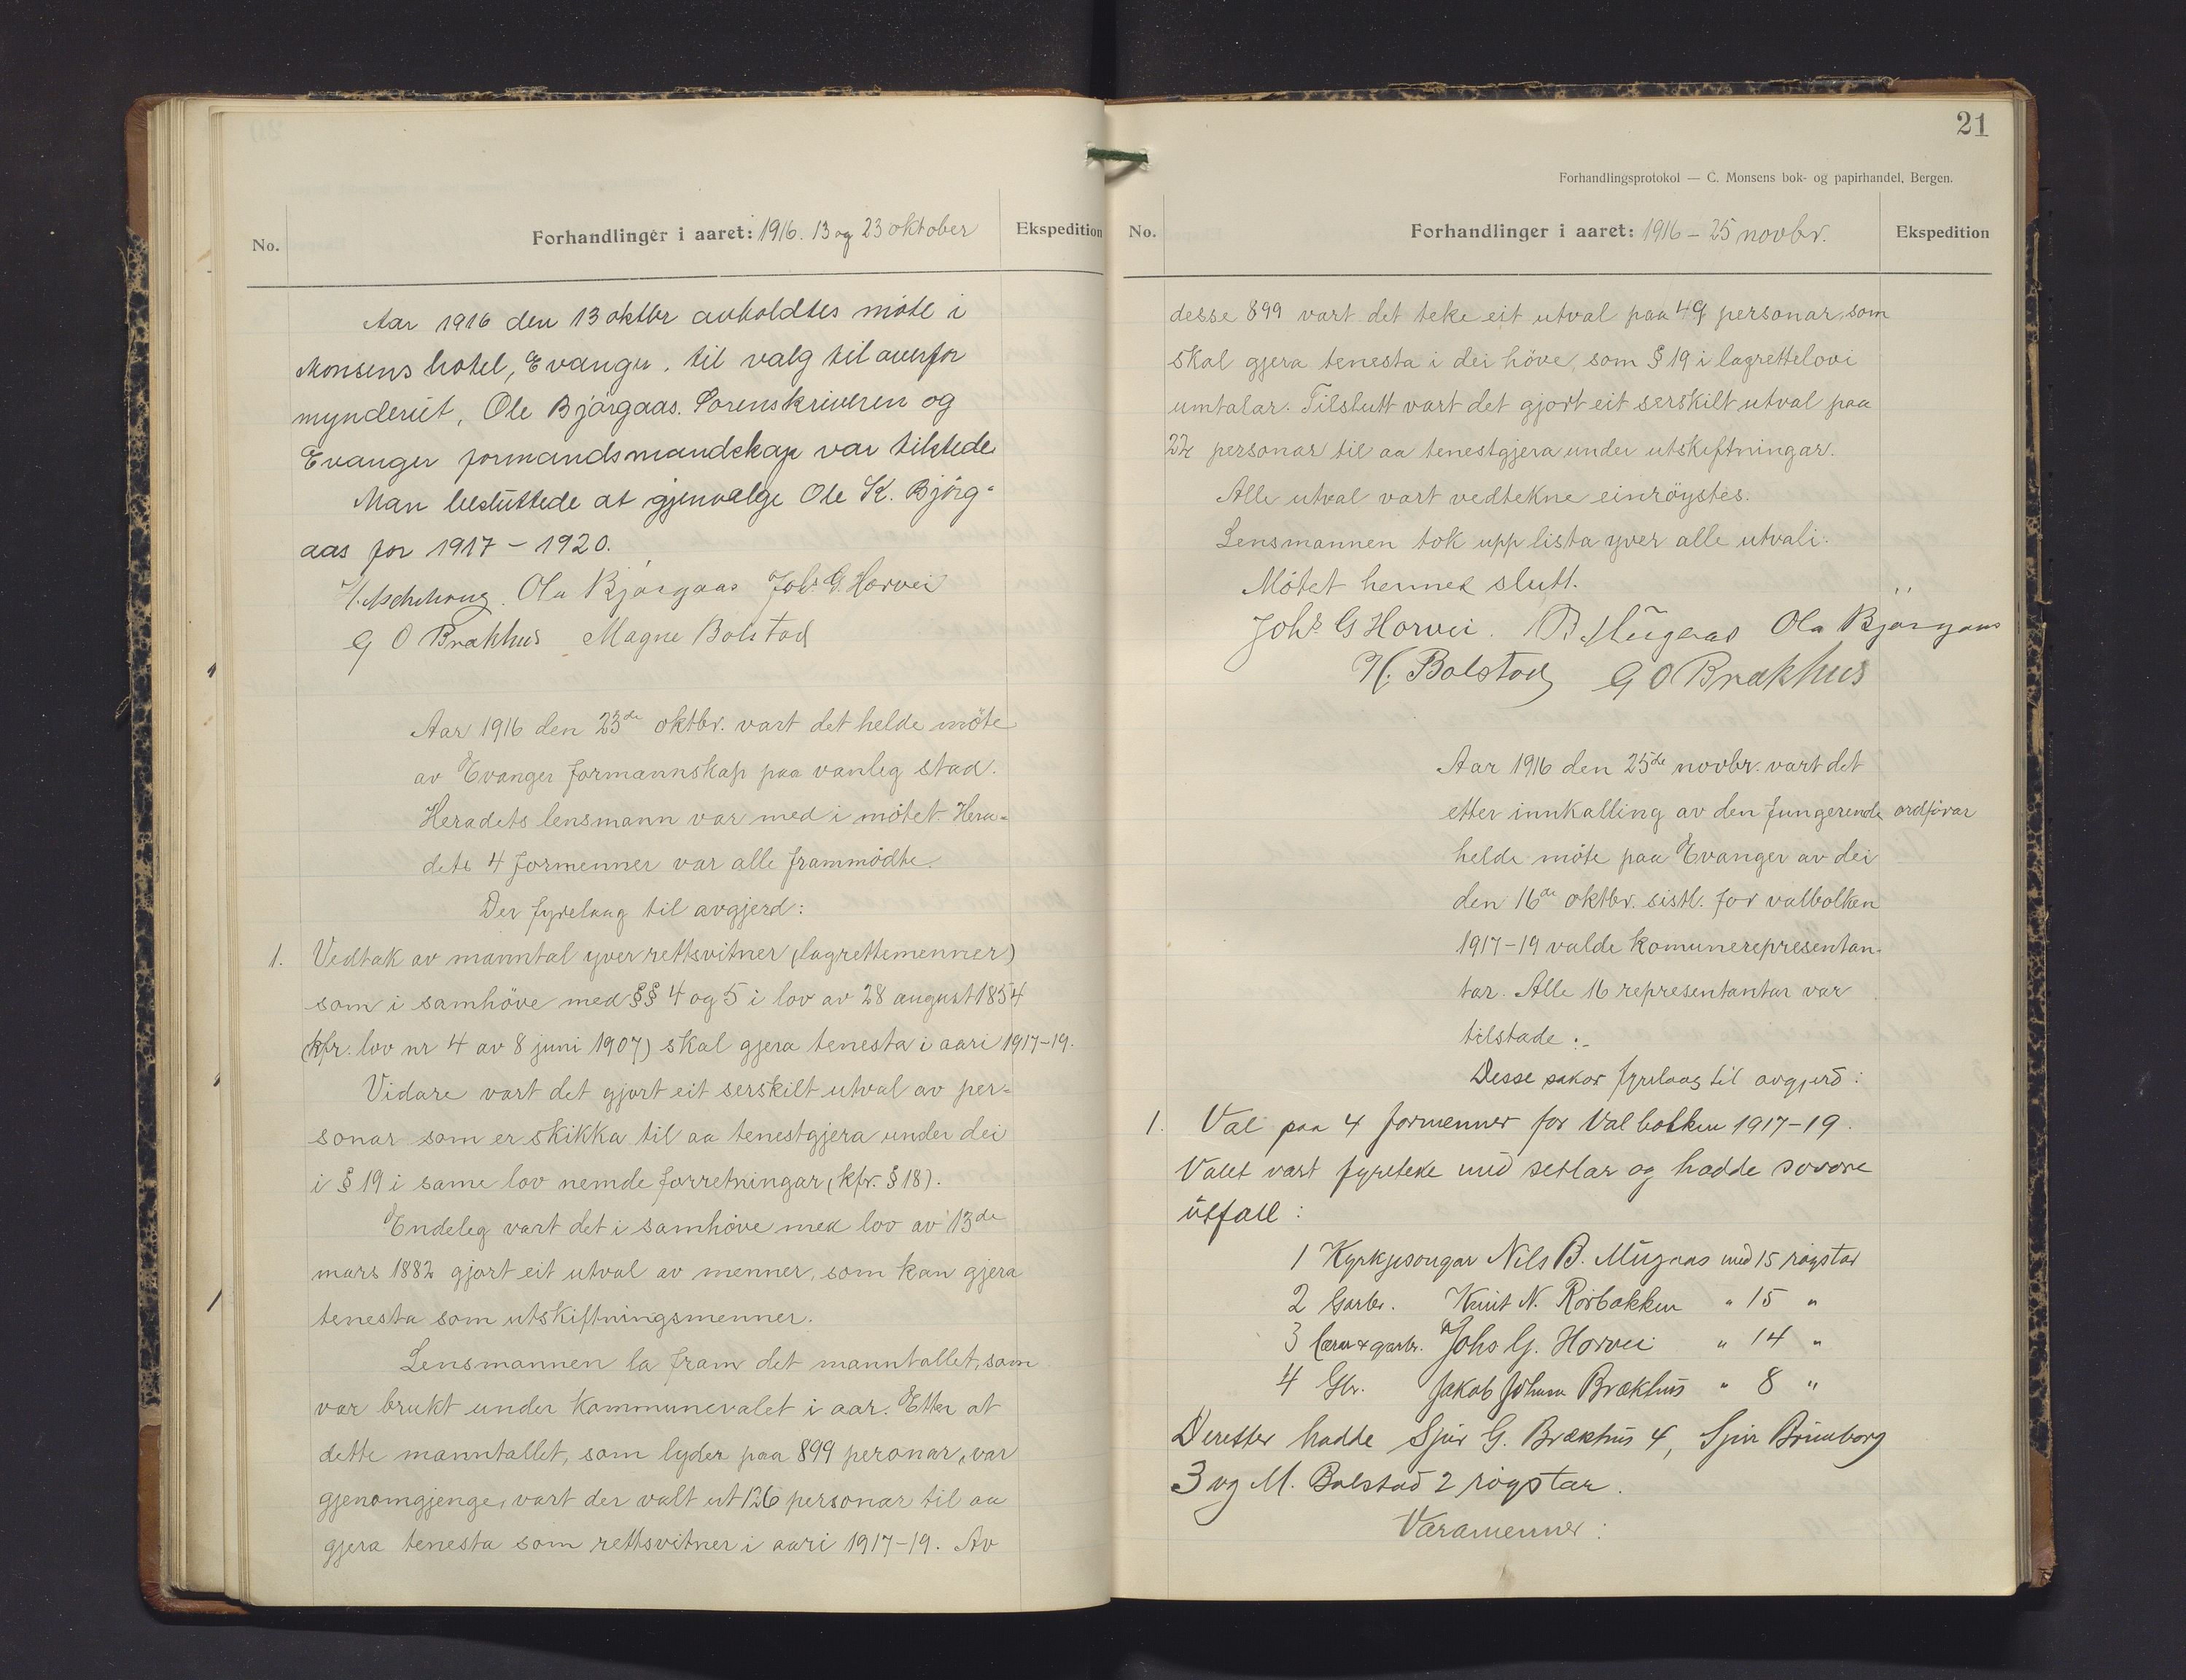 No.
Forhandlinger i aaret: 1916. 13 og 23 oktober
Ekspedition
Aar 1916 den 13 oktbr avholdtes möte i
Monsens hotel, Evanger, til valg til overfor
mynderiet, Ole Bjørgaas. Sorenskriveren og
Evanger formandsmandskap var tilstede
Man besluttede at gjenvælge Ole K. Bjørg-
aas for 1917 - 1920.
Ola Bjørgaas Johs G. Horvei
G O Brækhus Magne Bolstad
Aar 1916 den 23de oktbr. vart det helde möte
av Evanger formannskap paa vanleg stad.
Heradets lensmann var med i mötet. Hera-
dets 4 formenner var alle frammödte.
Der fyrelaag til avgjerd:
1. Vedtak av manntal yver rettsvitner (lagrettemenner)
som i samhöve med §§ 4 og 5 i lov av 28 august 1854
(kfr. lov nr 4 av 8 juni 1907) skal gjera tenesta i aari 1917-19.
Vidare vart det gjort eit serskilt utval av per-
sonar som er skikka til aa tenestgjera under dei
i § 19 i same lov nemde forretningar (kfr. § 18).
Endeleg vart det i samhöve med lov av 13de
mars 1882 gjort eit utval av menner, som kan gjera
tenesta som utskiftningsmenner.
Lensmannen la fram det manntallet, som
var brukt under kommunevalet i aar. Etter at
dette manntallet, som lyder paa 899 peronar, var
gjenomgjenge, vart der valt ut 126 personar til aa
gjera tenesta som rettsvitner i aari 1917-19. Av
21
Forhandlingsprotokol — C. Monsens bok- og papirhandel, Bergen.
No.
Forhandlinger i aaret: 1916 - 25 novbr.
Ekspedition
desse 899 vart det teke eit utval paa 49 personar, som
skal gjera tenesta i dei höve, som § 19 i lagrettelovi
umtalar. Tilslutt vart det gjort eit serskilt utval paa
22 personar til aa tenestgjera under utskiftningar.
Alle utval vart vedtekne einröystes.
Lensmannen tok upp lista yver alle utvali.
Mötet hermed slutt.
Johs G Horvei. B Mügaas Ola Bjørgaas
M. Bolstad G O Brækhus
Aar 1916 den 25de novbr. vart det
etter innkalling av den fungerende ordförar
helde möte paa Evanger av dei
den 16de oktbr. sistl. for valbolken
1917-19 valde komunerepresentan-
tar. Alle 16 representantar var
tilstade:-
Desse sakor fyrelaag til avgjerd:
1. Val paa 4 formenner for Valbolken 1917-19.
Valet vart fyreteke med setlar og hadde sovore
utfall:
1 Kyrkjesongar Nils B. Mügaas med 15 röystar
2 Garbr. Knut N. Rörbakken " 15 "
3 Lærar & garbr. Johs. G. Horvei " 14 "
4 Gbr. Jakob Johan Brækhus " 8 "
Deretter hadde Sjur G. Brækhus 4, Sjur Brunborg
3 og M. Bolstad 2 röystar.
Varamenner: